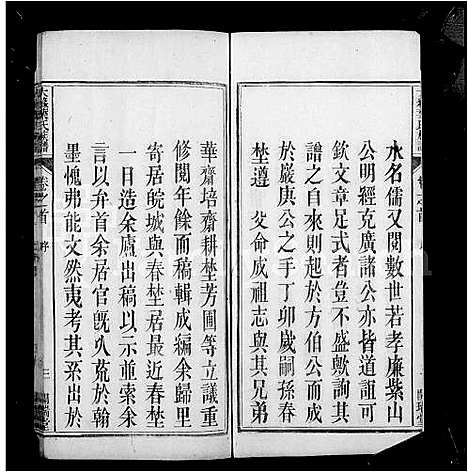 水名儒又閱數世若孝廉紫山
公明經克廣諸公亦皆道誼可
欽文章足式者豈不盛歟若夫
譜之自來則起於方伯公而成
於嚴庚公之手丁卯歲嗣孫春
埜遵　父命成祖志與其兄弟
華齋培齋耕埜芳圃等立議重
修閱年餘而稿輯成編余歸里
寄居皖城與春埜居最近春埜
一日造余廬出稿以示並索余
言以弁首余居官旣久荒於翰
墨愧弗能文然夷考其系出於
序
三